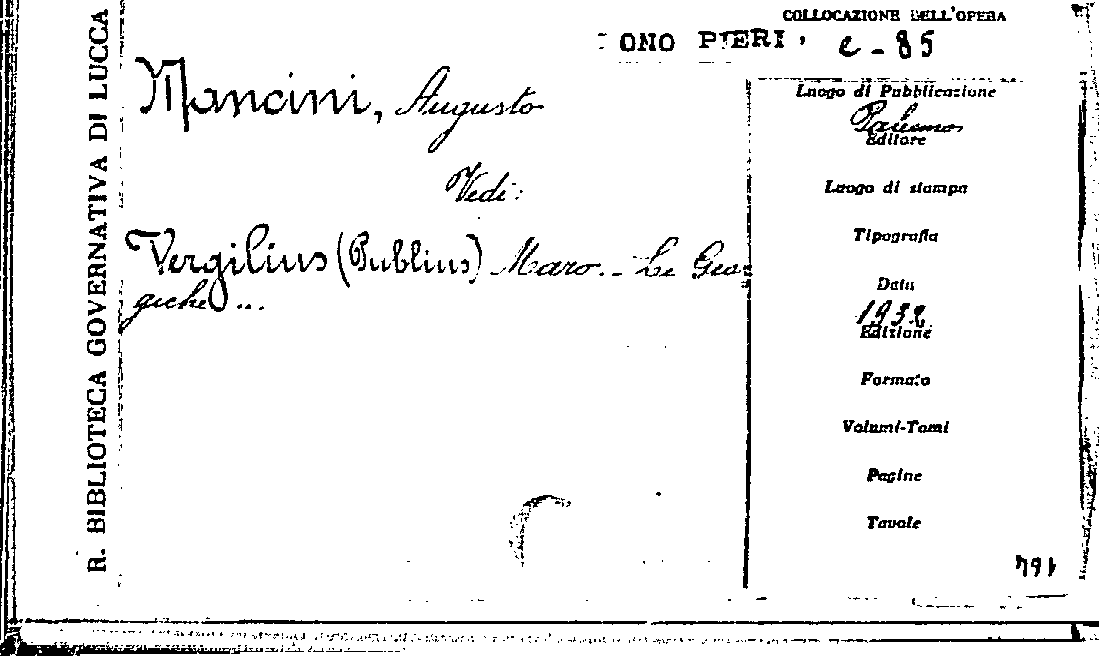 R. BIBLIOTECA GOVERNATIVA DI LUCCA
COLLOCAZIONE DELL'OPERA
ONO PIERI, c-85
Mancini, Augusto
Vedi:
Vergilius (Publius) Maro. - Le Geor=
giche ...
Luogo di Pubblicazione
Palermo
Editore
Luogo di stampa
Tipografia
Data
1932
Edizione
Formato
Volumi-Tomi
Pagine
Tavole